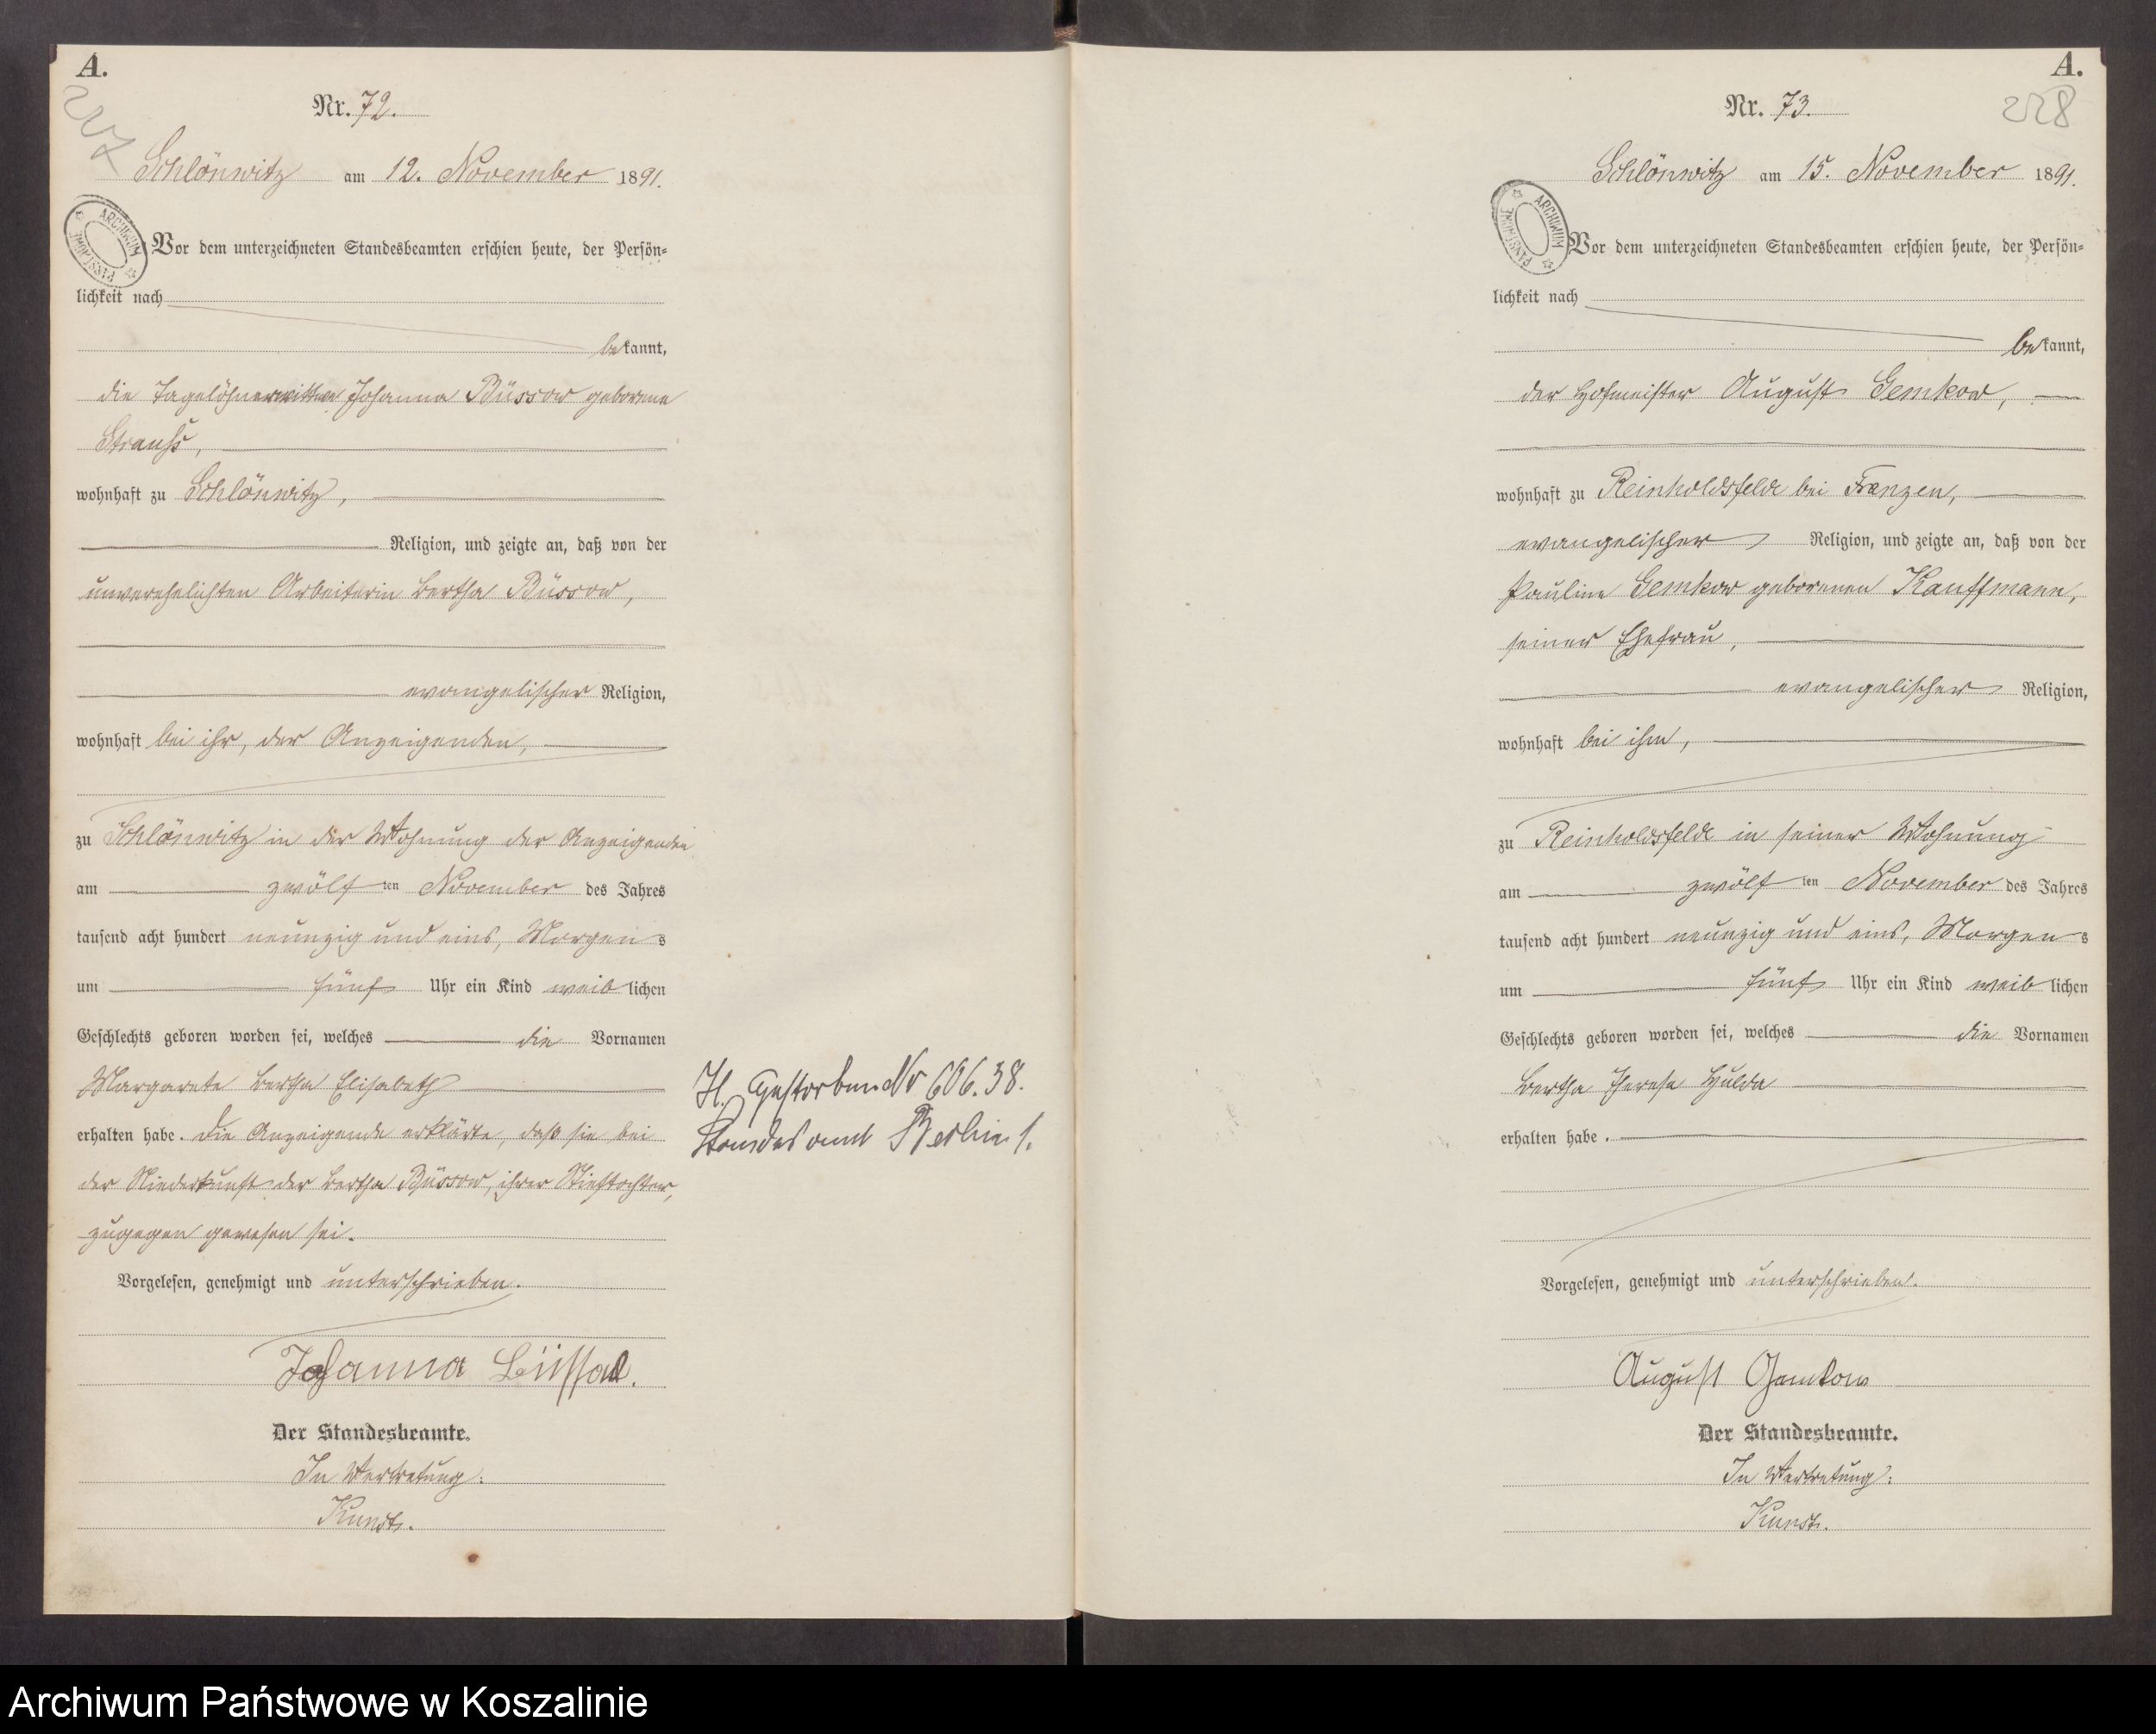 A.
Nr. 72.
227
Schlönwitz am 12. November 1891.
ARCHIWUM PAŃSTWOWE
Vor dem unterzeichneten Standesbeamten erschien heute, der Persön=
lichkeit nach
bekannt,
die Tagelöhnerwittwe Johanna Büssow geborene
Strauß,
wohnhaft zu Schlönwitz,
Religion, und zeigte an, daß von der
unverehelichten Arbeiterin Bertha Büssow,
evangelischer Religion,
wohnhaft bei ihr, der Anzeigenden,
zu Schlönwitz in der Wohnung der Anzeigenden
am zwölf ten November des Jahres
tausend acht hundert neunzig und eins, Morgens
um fünf Uhr ein Kind weiblichen
Geschlechts geboren worden sei, welches die Vornamen
Margarete Bertha Elisabeth
erhalten habe. Die Anzeigende erklärte, daß sie bei
der Niederkunft der Bertha Büssow, ihrer Stieftochter,
zugegen gewesen sei.
Vorgelesen, genehmigt und unterschrieben.
Johanna Büssow.
Der Standesbeamte.
In Vertretung:
Kunst.
H. Gestorben Nr 606.38.
Standesamt Berlin 1.
A.
Nr. 73.
228
Schlönwitz am 15. November 1891.
ARCHIWUM PAŃSTWOWE
Vor dem unterzeichneten Standesbeamten erschien heute, der Persön=
lichkeit nach
bekannt,
der Hofmeister August Gemkow,
wohnhaft zu Reinholdsfelde bei Franzen,
evangelischer Religion, und zeigte an, daß von der
Pauline Gemkow geborenen Kauffmann,
seiner Ehefrau,
evangelischer Religion,
wohnhaft bei ihm,
zu Reinholdsfelde in seiner Wohnung
am zwölf ten November des Jahres
tausend acht hundert neunzig und eins, Morgens
um fünf Uhr ein Kind weiblichen
Geschlechts geboren worden sei, welches die Vornamen
Bertha Therese Hulda
erhalten habe.
Vorgelesen, genehmigt und unterschrieben.
August Gemkow
Der Standesbeamte.
In Vertretung:
Kunst.
Archiwum Państwowe w Koszalinie